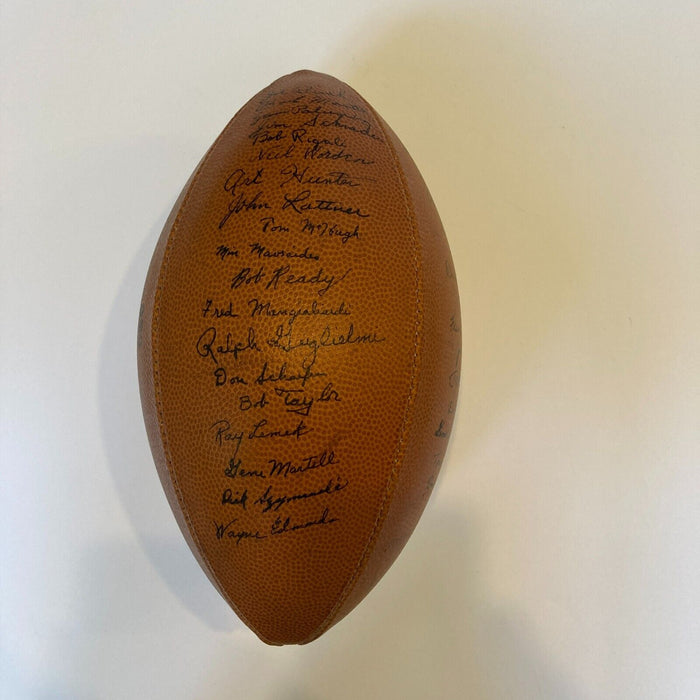 Tom Schrader
Bob Rigali
Neil Worden
Art Hunter
John Lattner
Tom McHugh
Min Mavraides
Bob Ready
Fred Mangialardi
Ralph Guglielmi
Don Schaefer
Bob Taylor
Ray Lemek
Gene Martell
Dick Szymanski
Wayne Edmonds